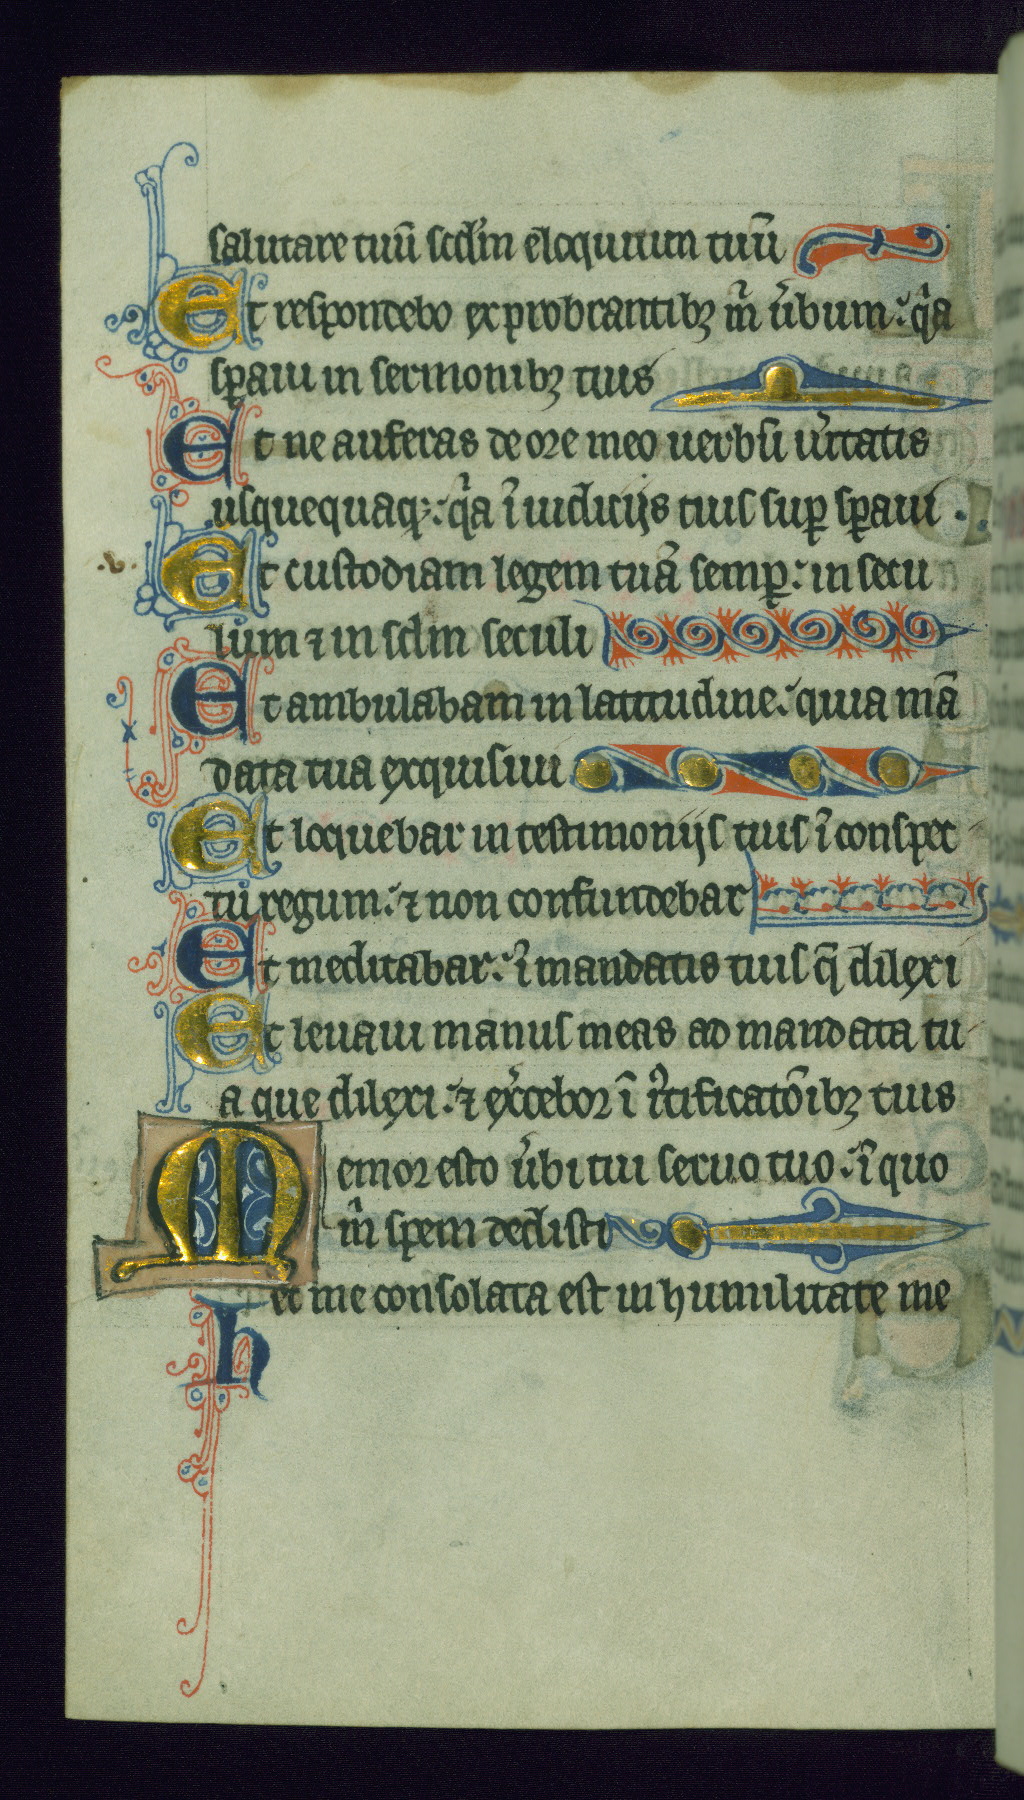 salutare tuū scd̄m eloquium tuū
Et respondebo exprobrantibꝫ m̄ ūbum: q̄a
sp̄aui in sermonibꝫ tuis
Et ne auferas de ore meo uerbū ūitatis
usquequaqꝫ: q̄a ī iudicijs tuis sup̄ sp̄aui
Et custodiam legem tuā semp̄: in secu
lum ⁊ in sc̄lm seculi
Et ambulabam in latitudine: quia mā
data tua exquisiui
Et loquebar in testimonijs tuis ī conspec
tu regum: ⁊ non confundebar
Et meditabar: ī mandatis tuis q̄ dilexi
Et leuaui manus meas ad mandata tu
a que dilexi: ⁊ ex̄cebor ī iustificatōibꝫ tuis
Memor esto ūbi tui seruo tuo: ī quo
m̄ spem dedisti
hec me consolata est in humilitate me